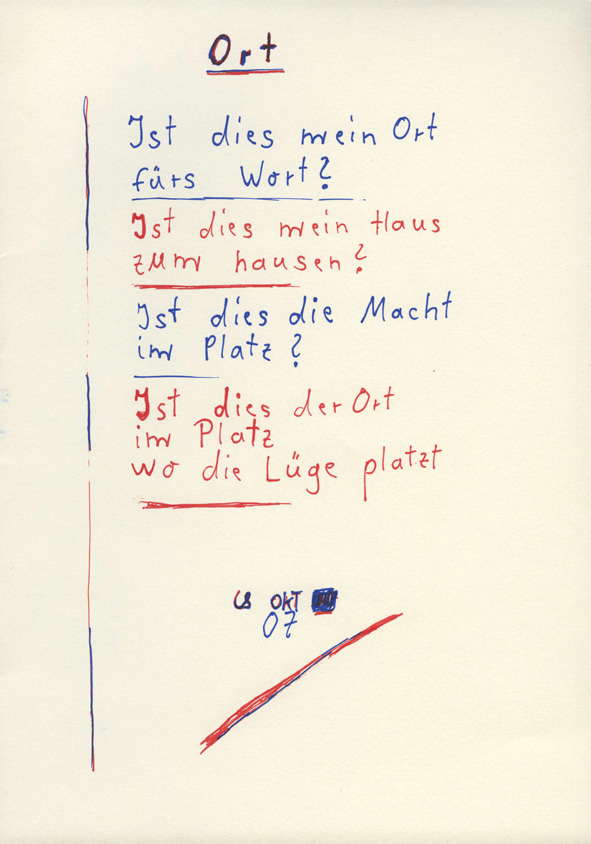 Ort
Ist dies mein Ort
fürs Wort?
Ist dies mein Haus
zum hausen?
Ist dies die Macht
im Platz?
Ist dies der Ort
im Platz
wo die Lüge platzt
CS OKT
07